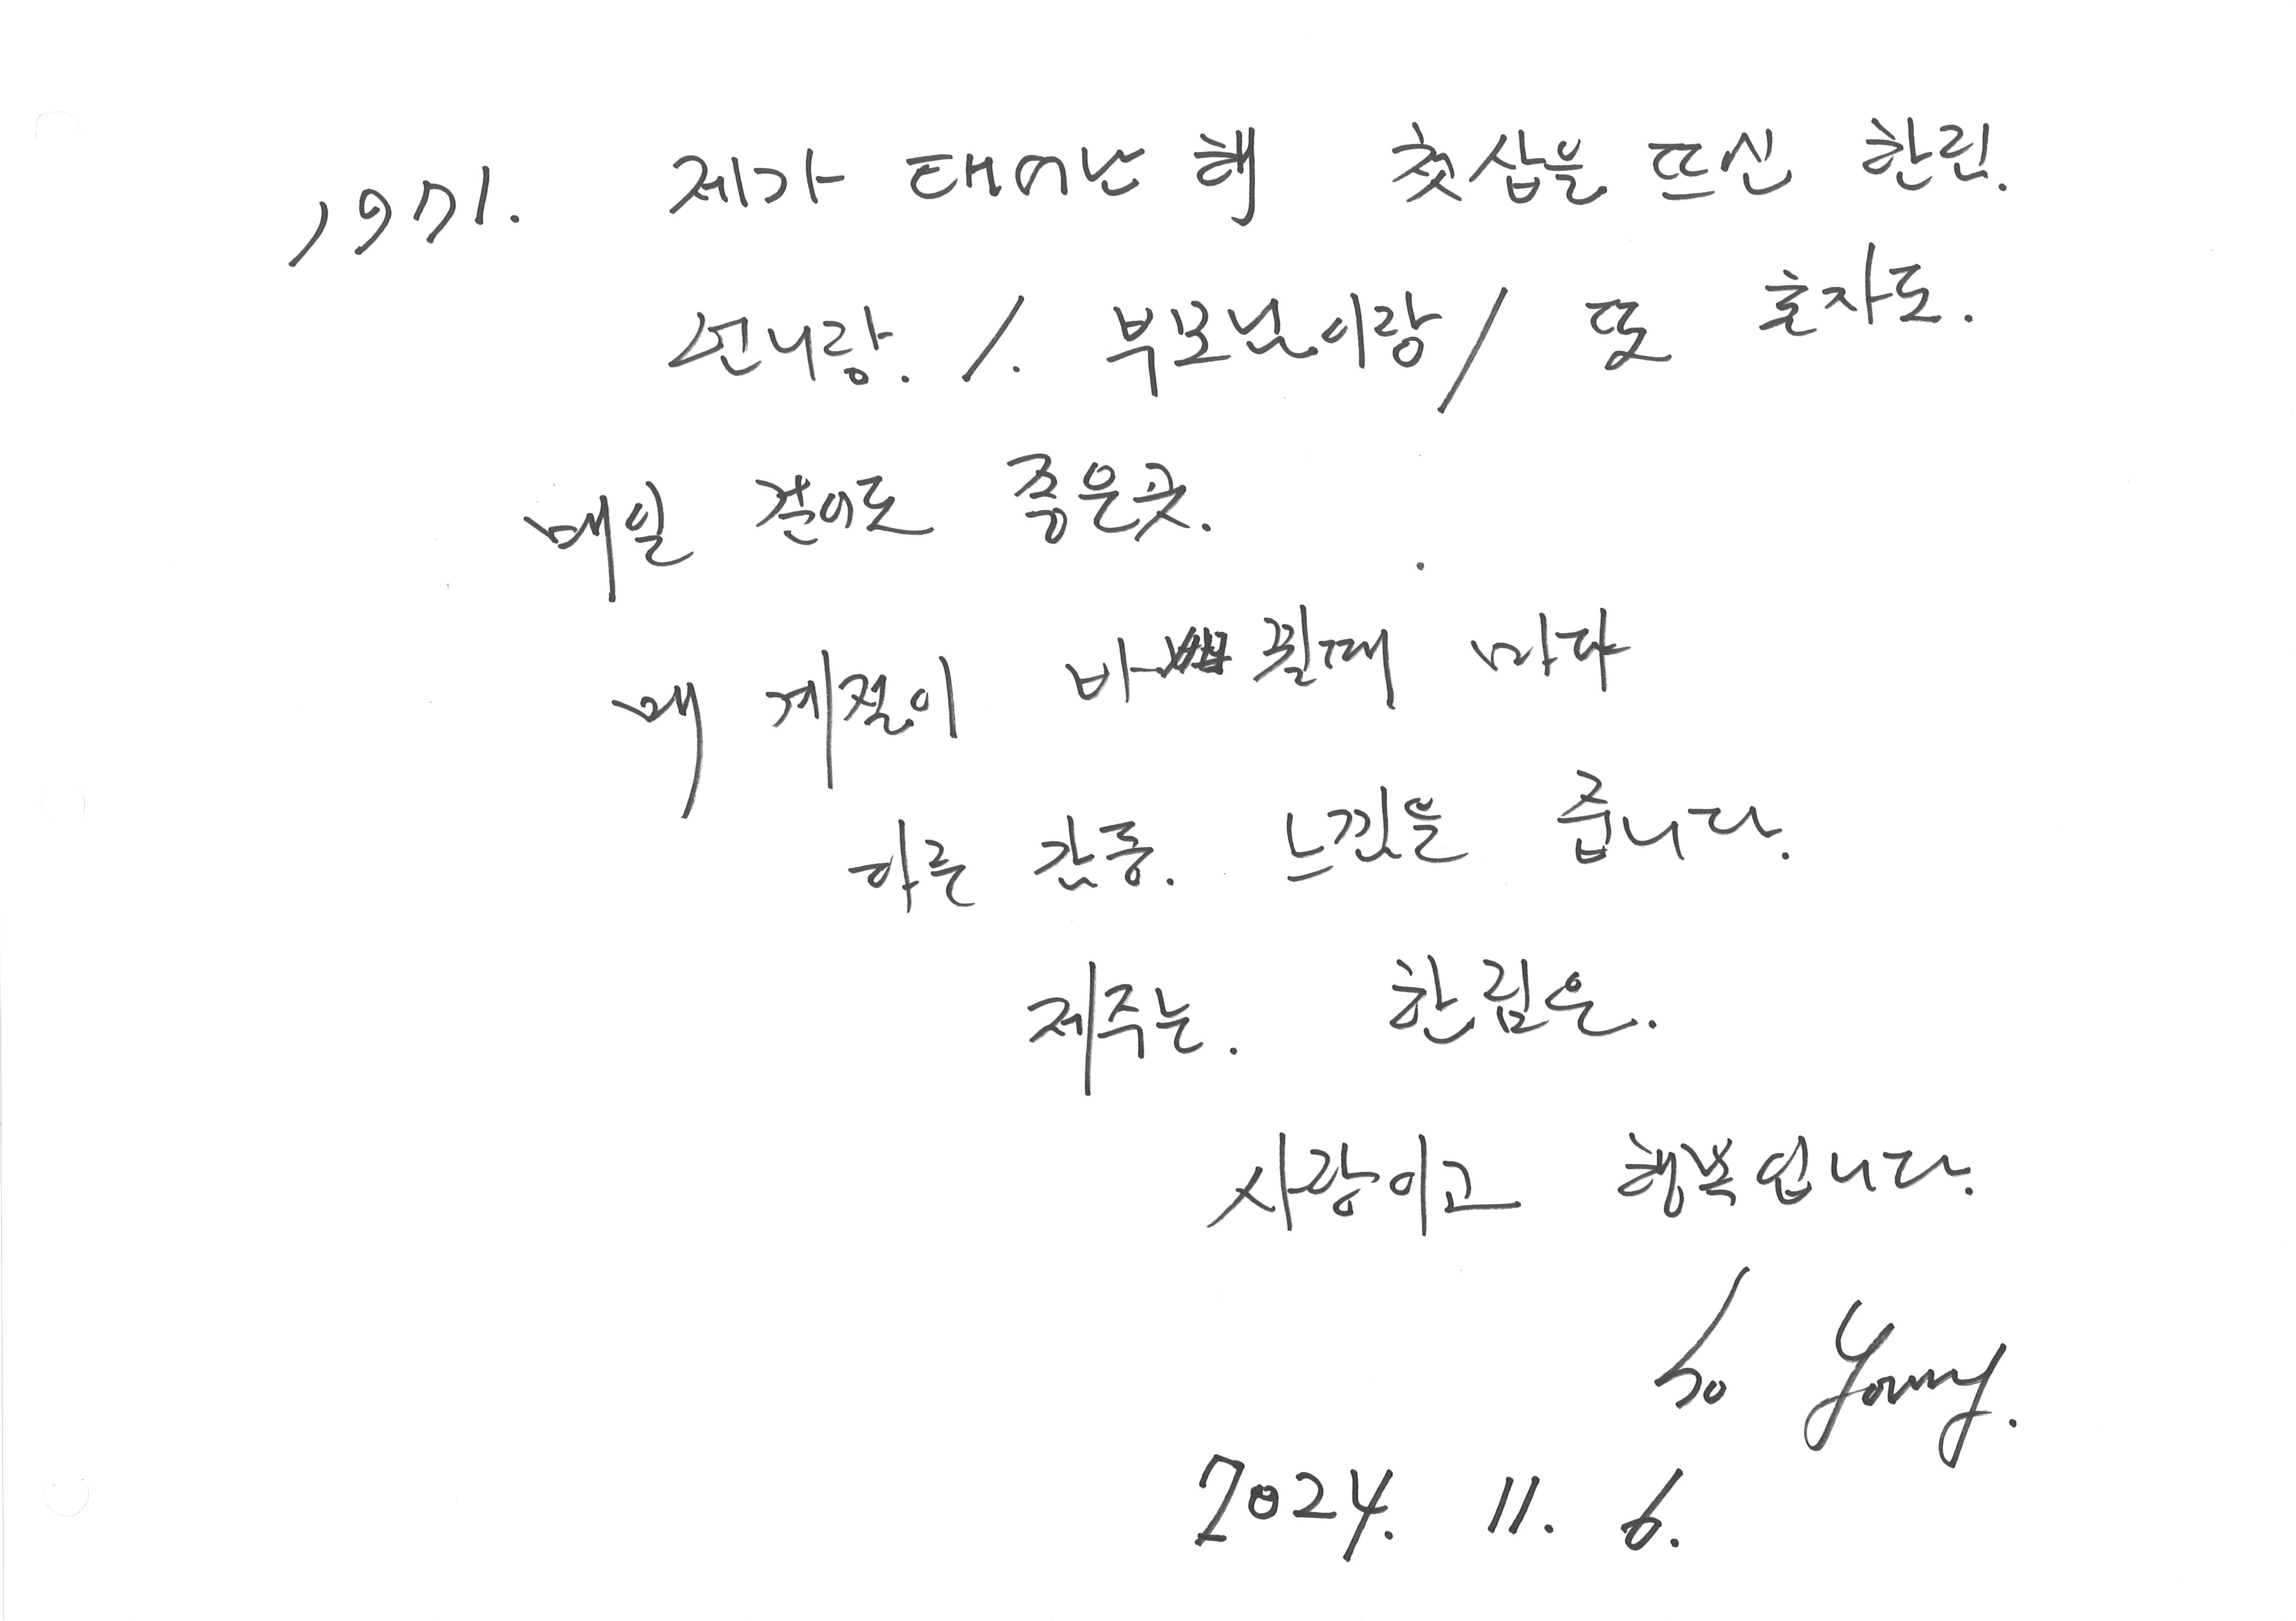 1971. 제가 태어난 해 첫삽을 뜨신 한림.
언니랑. /. 부모님이랑/ 또 혼자도.
매일 걸어도 좋은곳.
매 계절이 바뀔때 마다
다른 감동. 느낌을 줍니다.
제주는. 한림은.
사랑이고 행복입니다.
So Young.
2024. 11. 6.